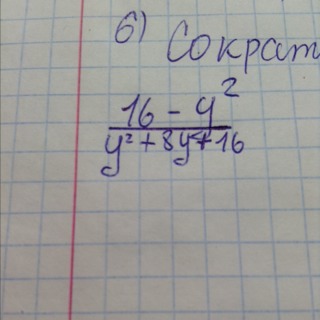 б) Сократ
16 - y²
y² + 8y + 16